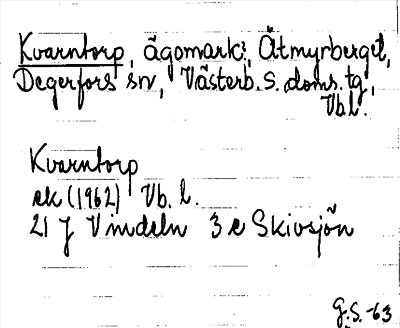 Kvarntorp, ägomark i, Åtmyrberget,
Degerfors sn, Västerb. s. doms. tg,
Vbl.
Kvarntorp
ek (1962) Vb. l.
21 J Vindeln 3 e Skivsjön
G.S. -63